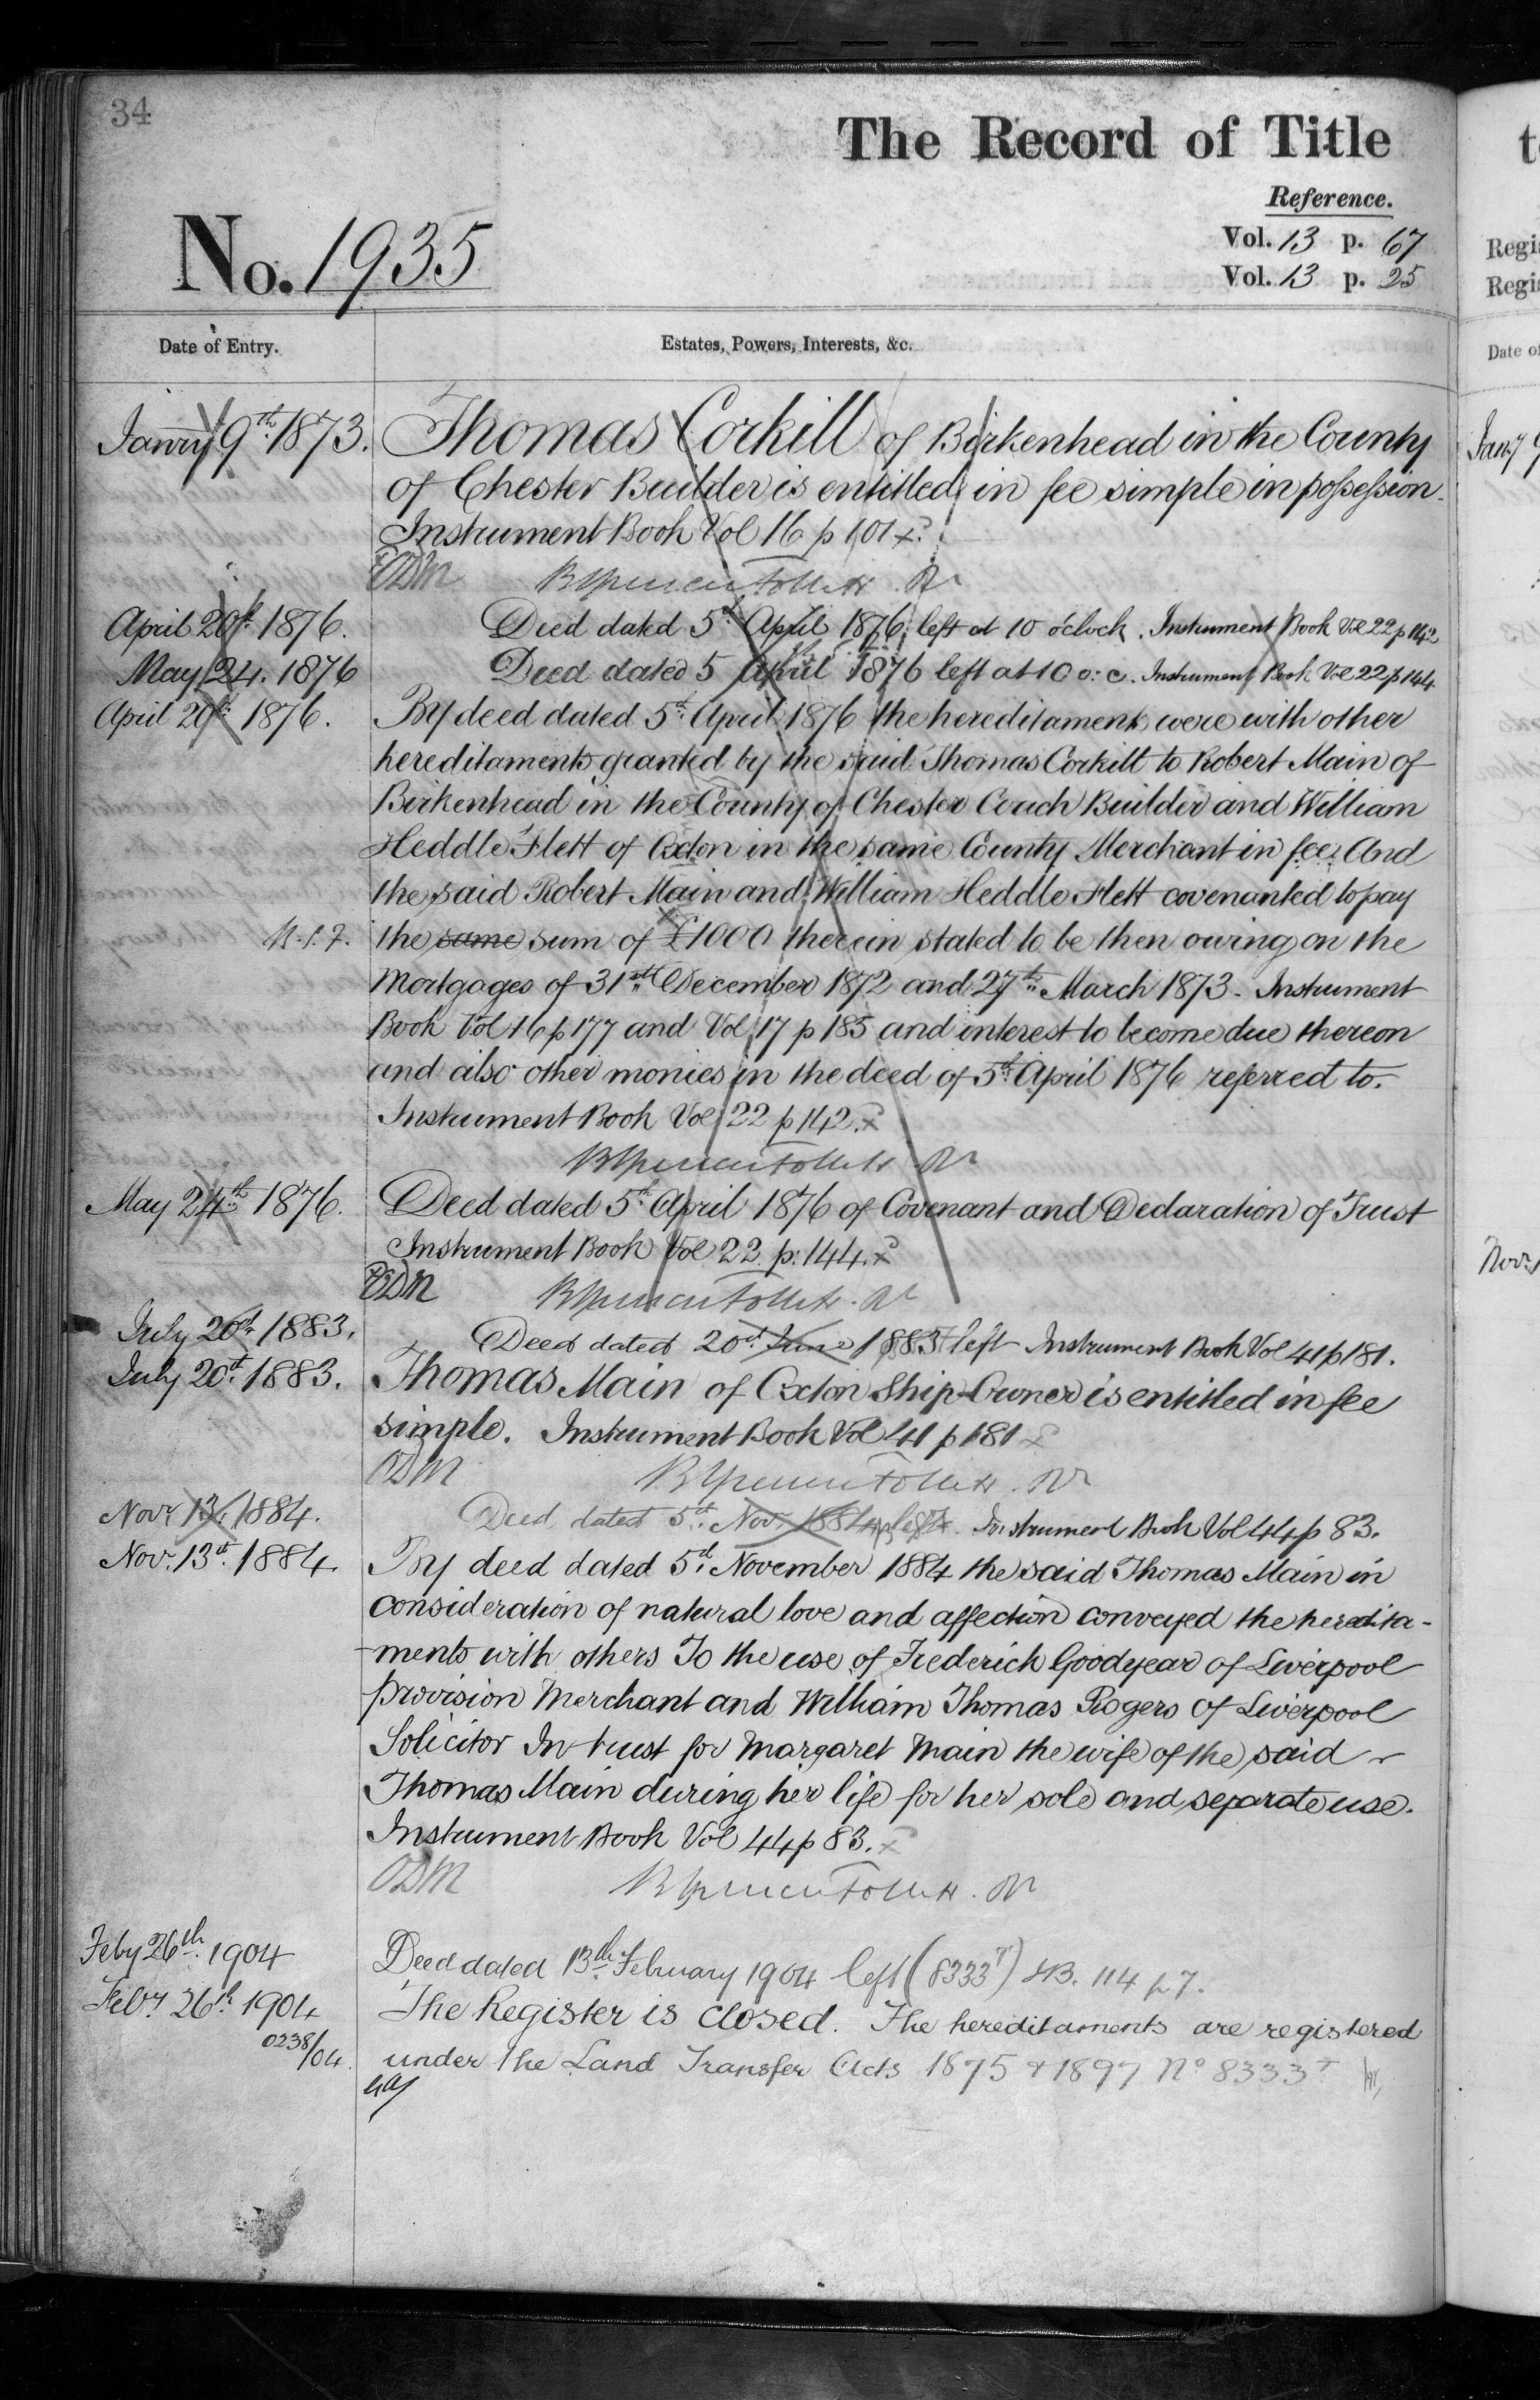 34
The Record of Title
Reference.
No. 1935
Vol. 13 p. 67
Vol. 13 p. 25
Date of Entry.
Estates, Powers, Interests, &c.
Janry 9th 1873.
Thomas Corkill of Birkenhead in the County
of Chester Builder is entitled in fee simple in possession.
Instrument Book Vol 16 p 101
April 20th 1876.
Deed dated 5th April 1876 left at 10 o'clock. Instrument Book Vol 22 p 142
May 24. 1876
Deed dated 5 April 1876 left at 10 o:c. Instrument Book Vol 22 p 144
April 20th 1876.
By deed dated 5th April 1876 the hereditaments were with other
hereditaments granted by the said Thomas Corkill to Robert Main of
Birkenhead in the County of Chester Coach Builder and William
Heddle Flett of Oxton in the same County Merchant in fee And
the said Robert Main and William Heddle Flett covenanted to pay
the same sum of £1000 therein stated to be then owing on the
Mortgages of 31st December 1872 and 27th March 1873. Instrument
Book Vol 16 p 177 and Vol 17 p 185 and interest to become due thereon
and also other monies in the deed of 5th April 1876 referred to.
Instrument Book Vol 22 p 142.
May 24th 1876.
Deed dated 5th April 1876 of Covenant and Declaration of Trust
Instrument Book Vol 22 p. 144.
July 20th 1883.
Deed dated 20th June 1883 left Instrument Book Vol 41 p 181.
July 20th 1883.
Thomas Main of Oxton Ship-Owner is entitled in fee
simple. Instrument Book Vol 41 p 181
Novr. 13. 1884.
Deed dated 5th Nov. 1884 left. Instrument Book Vol 44 p 83.
Nov. 13th 1884.
By deed dated 5th November 1884 the said Thomas Main in
consideration of natural love and affection conveyed the heredita-
-ments with others To the use of Frederick Goodyear of Liverpool
provision Merchant and William Thomas Rogers of Liverpool
Solicitor In trust for Margaret Main the wife of the said
Thomas Main during her life for her sole and separate use.
Instrument Book Vol 44 p 83.
Feby 26th 1904
Deed dated 13th February 1904 left (8333T) IB. 114 p 7.
Feby. 26th 1904
The Register is closed. The hereditaments are registered
0238/04.
under the Land Transfer Acts 1875 & 1897 No 8333T